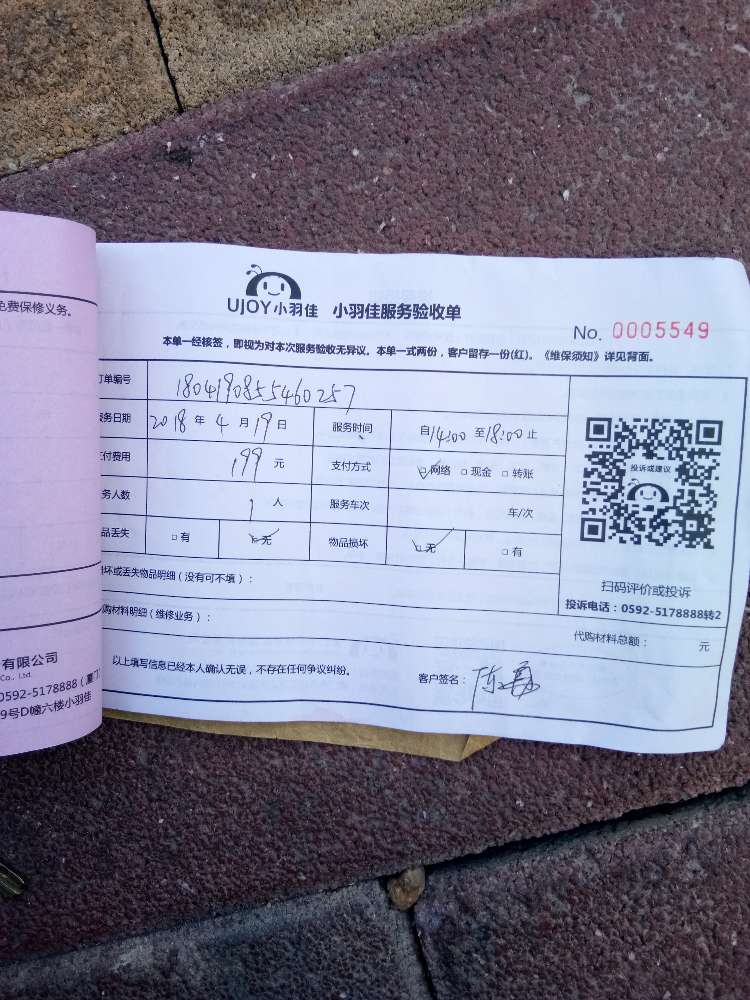 免费保修义务。
UJOY小羽佳 小羽佳服务验收单
No. 0005549
本单一经核签，即视为对本次服务验收无异议。本单一式两份，客户留存一份(红)。《维保须知》详见背面。
订单编号 1804190855460257
服务日期 2018 年 4 月 19 日 服务时间 自 14:00 至 18:00 止
支付费用 199 元 支付方式 ☑网络 □现金 □转账
务人数 1 人 服务车次 车/次
品丢失 □有 ☑无 物品损坏 ☑无 □有
投诉或建议
扫码评价或投诉
投诉电话：0592-5178888转2
损坏或丢失物品明细（没有可不填）：
代购材料明细（维修业务）： 代购材料总额： 元
以上填写信息已经本人确认无误，不存在任何争议纠纷。 客户签名：
有限公司
Co., Ltd.
0592-5178888（厦门
9号D幢六楼小羽佳